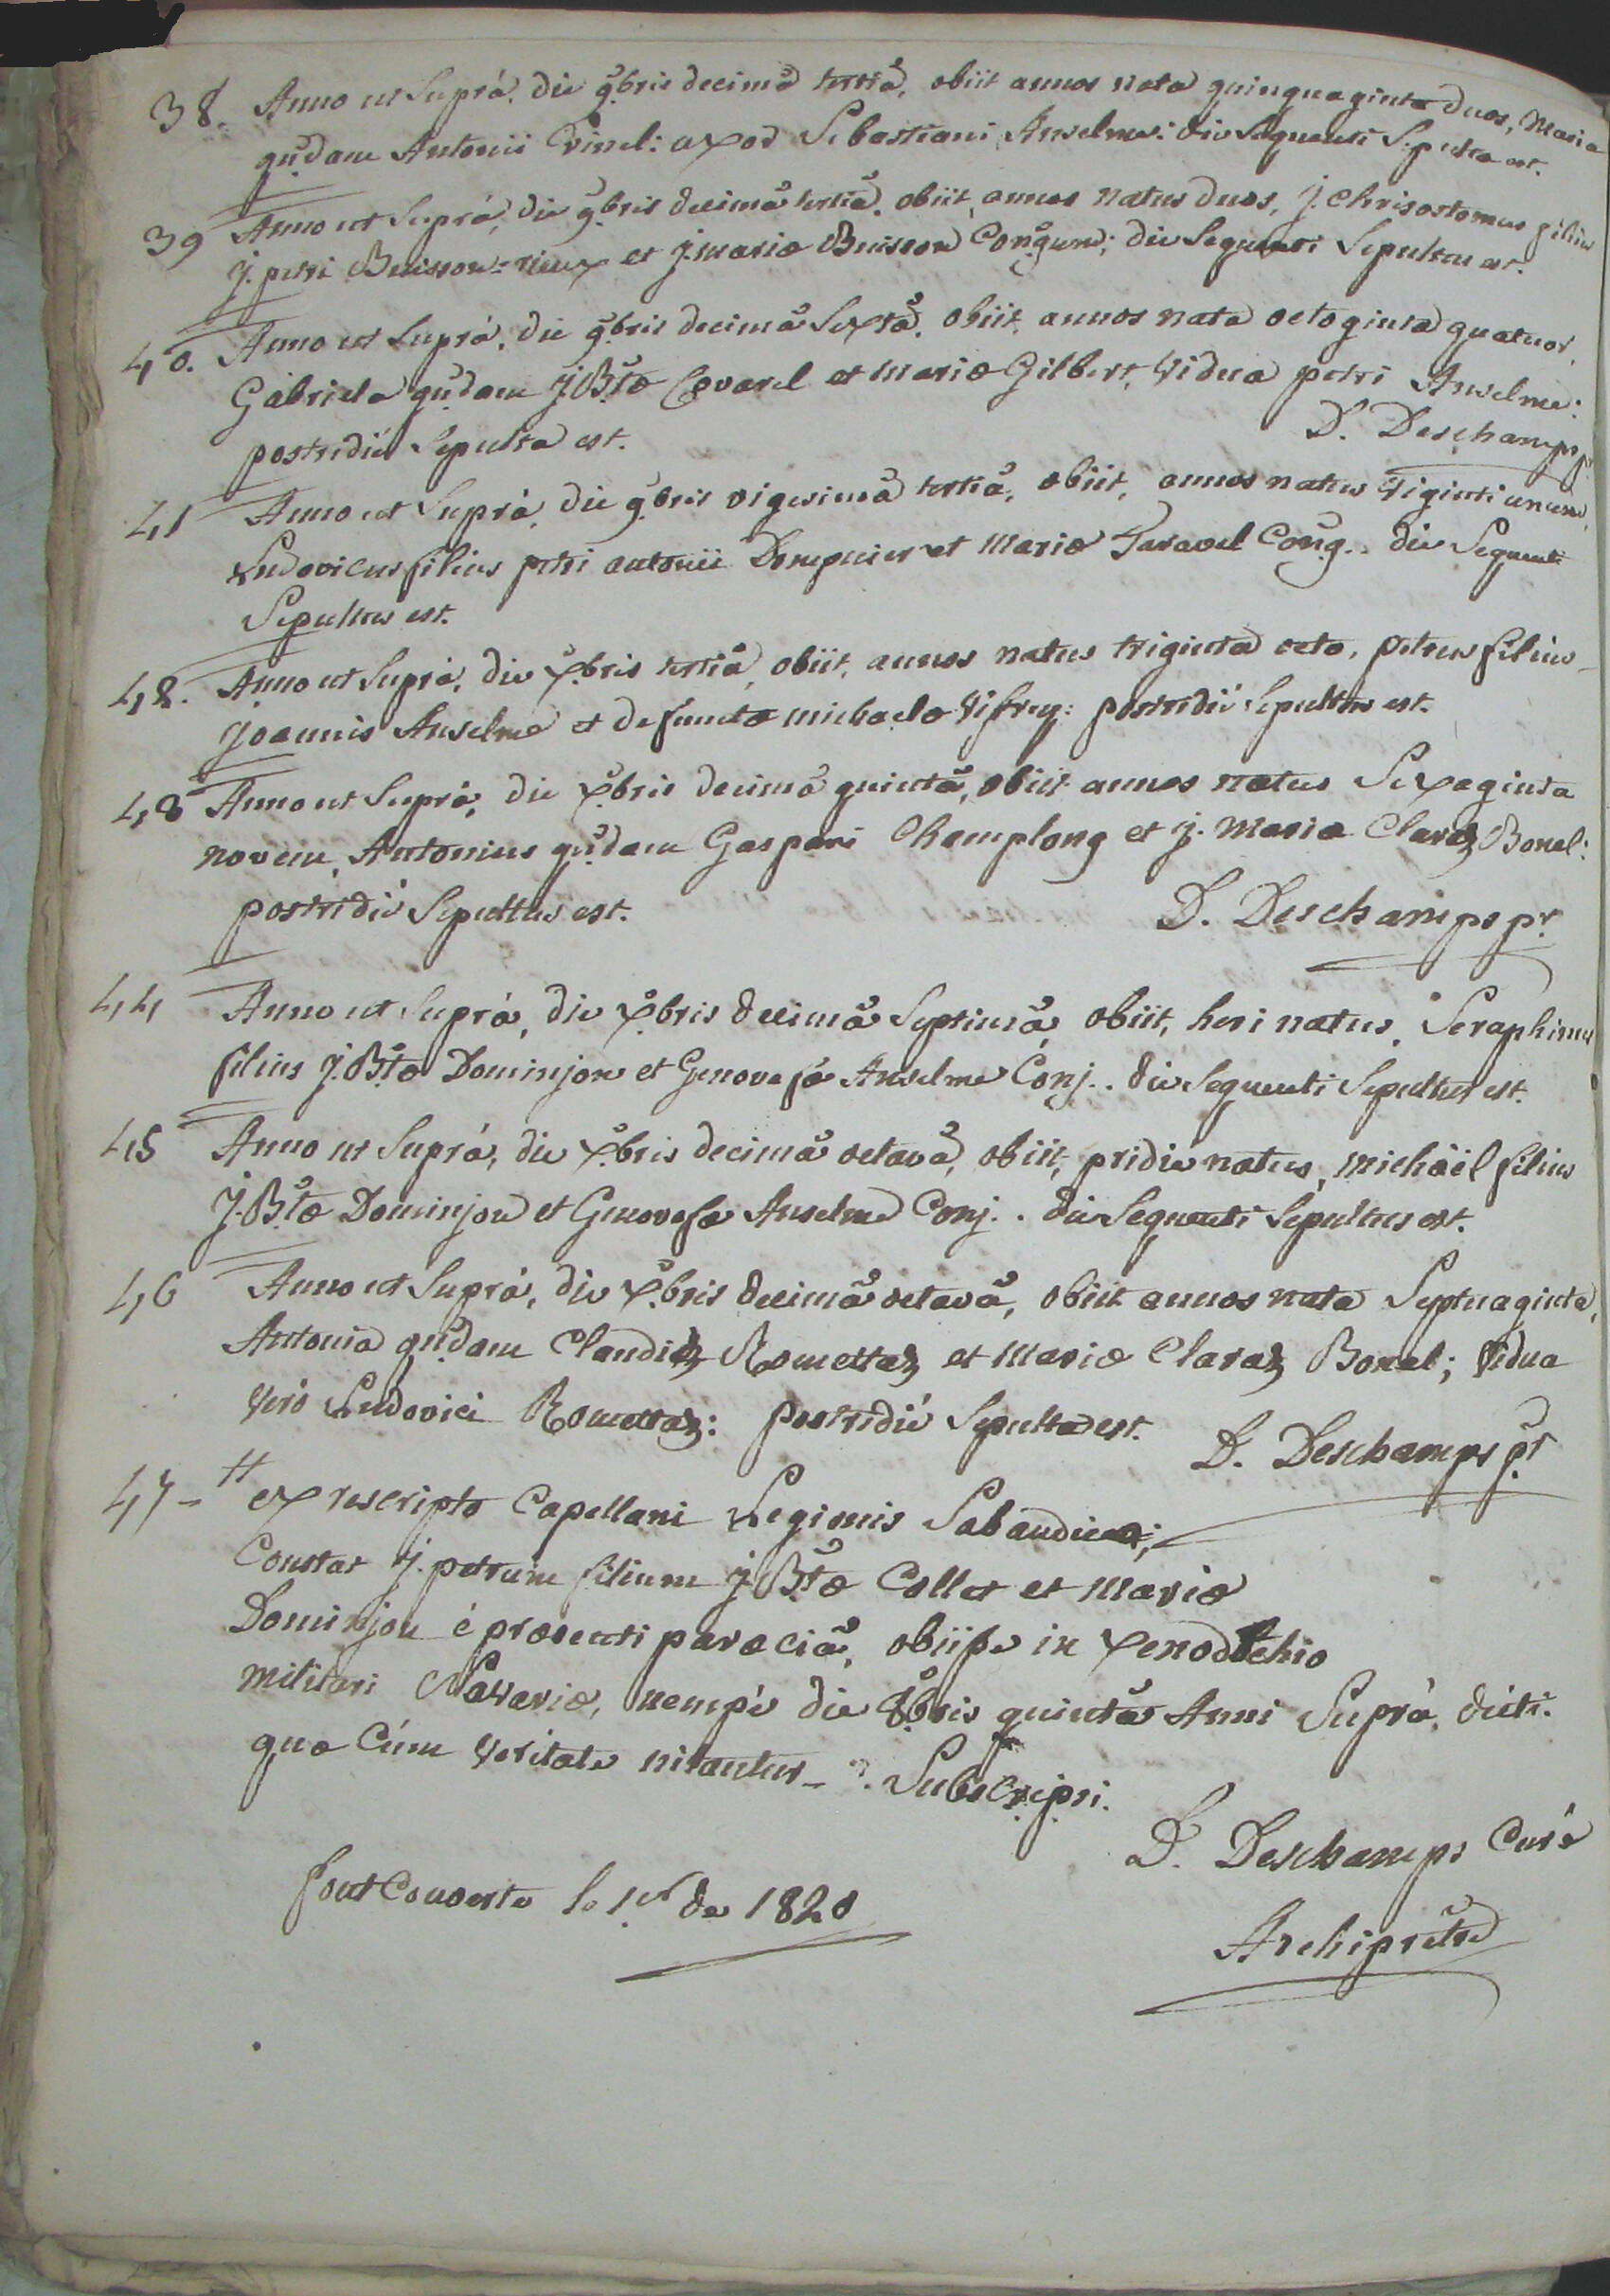 38. Anno ut Suprà, die 9.bris decimâ tertiâ, obiit annos nata quinquaginta duos, Maria
qu.dam Antonii Vinel: uxor Sebastiani Anselme: die Sequenti Sepulta est.
39 Anno ut Suprà, die 9.bris decimâ tertiâ, obiit, annos natus duos, j. Chrisostomus filius
j. petri Buisson-rieux et j. mariæ Buisson Conjgum; die Sequenti Sepultus est.
40. Anno ut Suprà, die 9.bris decimâ Sextâ, obiit, annos nata octoginta quatuor,
Gabriela qu.dam J.Btæ Covarel et mariæ Gilbert, Vidua petri Anselme:
postridiè Sepulta est. D. Deschamps pr
41 Anno ut Suprà, die 9.bris vigesimâ tertiâ, obiit, annos natus Viginti unum,
Ludovicus filius petri antonii Dompnier et Mariæ Taravel Conjg.. die Sequenti
Sepultus est.
42. Anno ut Suprà, die X.bris tertiâ, obiit, annos natus triginta octo, petrus filius
Joannis Anselme et defunctæ michaelæ Vifrey: postridiè Sepultus est.
43 Anno ut Suprà, die X.bris decimâ quintâ, obiit annos natus Sexaginta
novem, Antonius qu.dam Gaspari Champlong et j. Maria Claraz Bonel:
postridiè Sepultus est. D. Deschamps pr.
44 Anno ut Suprà, die X.bris decimâ Septimâ, obiit, heri natus, Seraphinus
filius J.Btæ Dominjon et Genovefæ Anselme Conj.. die Sequenti Sepultus est.
45 Anno ut Suprà, die X.bris decimâ octavâ, obiit, pridiè natus, michäel filius
J.Btæ Dominjon et Genovefæ Anselme Conj.. die Sequenti Sepultus est.
46 Anno ut Suprà, die X.bris decimâ octavâ, obiit annos nata Septuaginta,
Antonia qu.dam Claudii Romettaz et Mariæ Claraz Bonel; Vidua
Verò Ludovici Romettaz: postridiè Sepulta est. D. Deschamps pr
47- ex rescripto Capellani Legionis Sabaudiæ;
Constat J. petrum filium J.Btæ Collet et Mariæ
Dominjon è præsenti parœciâ, obiisse in Xenodochio
militari Navariæ, nempè die 8.bris quintâ Anni Suprà dicti.
quæ Cùm Veritate nitantur- Subscripsi.
D. Deschamps Curé
fontCouverte le 1.er de 1820
Archiprêtre